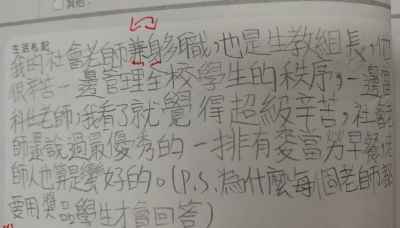 其他:
生活札記
我的社會老師兼身多職,也是生教組長,他
很辛苦一邊管理全校學生的秩序,一邊
科任老師,我看了就覺得超級辛苦,社會
師還說過最優秀的一排有麥當勞早餐
師人也算是蠻好的。(P.S.為什麼每個老師
要用獎品學生才會回答)